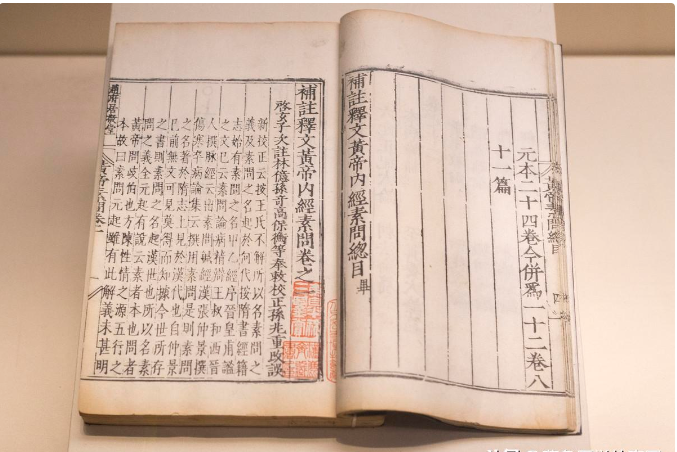 元本二十四卷今併爲一十二卷八
十一篇
補註釋文黃帝內經素問總目畢
補註釋文黃帝內經素問卷之一
啓玄子次註林億孫奇高保衡等奉敕校正孫兆重改誤
新校正云按王氏不解所以名素問之
義及素問之名起於何代按隋書經籍
志始有素問之名甲乙經序晉皇甫謐
之文已云素問論病精辨王叔和西晉
人撰脉經云出素問鍼經漢張仲景撰
傷寒卒病論集云撰用素問是則素問
之名著於隋志上見於漢代也自仲景
已前無文可見莫得而知據今世所存
之書則素問之名起漢世也所以名素
問之義全元起有說云素者本也問者
黃帝問歧伯也方陳性情之源五行之
本故曰素問元起雖有此解義未甚明